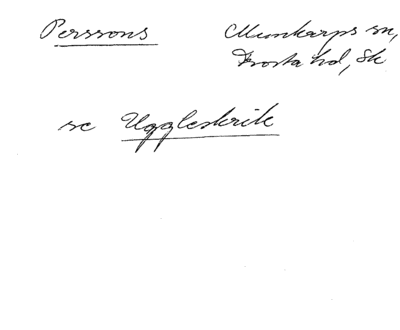 Perssons Munkarps sn,
Frosta hd, Sk
se Uggleskrik